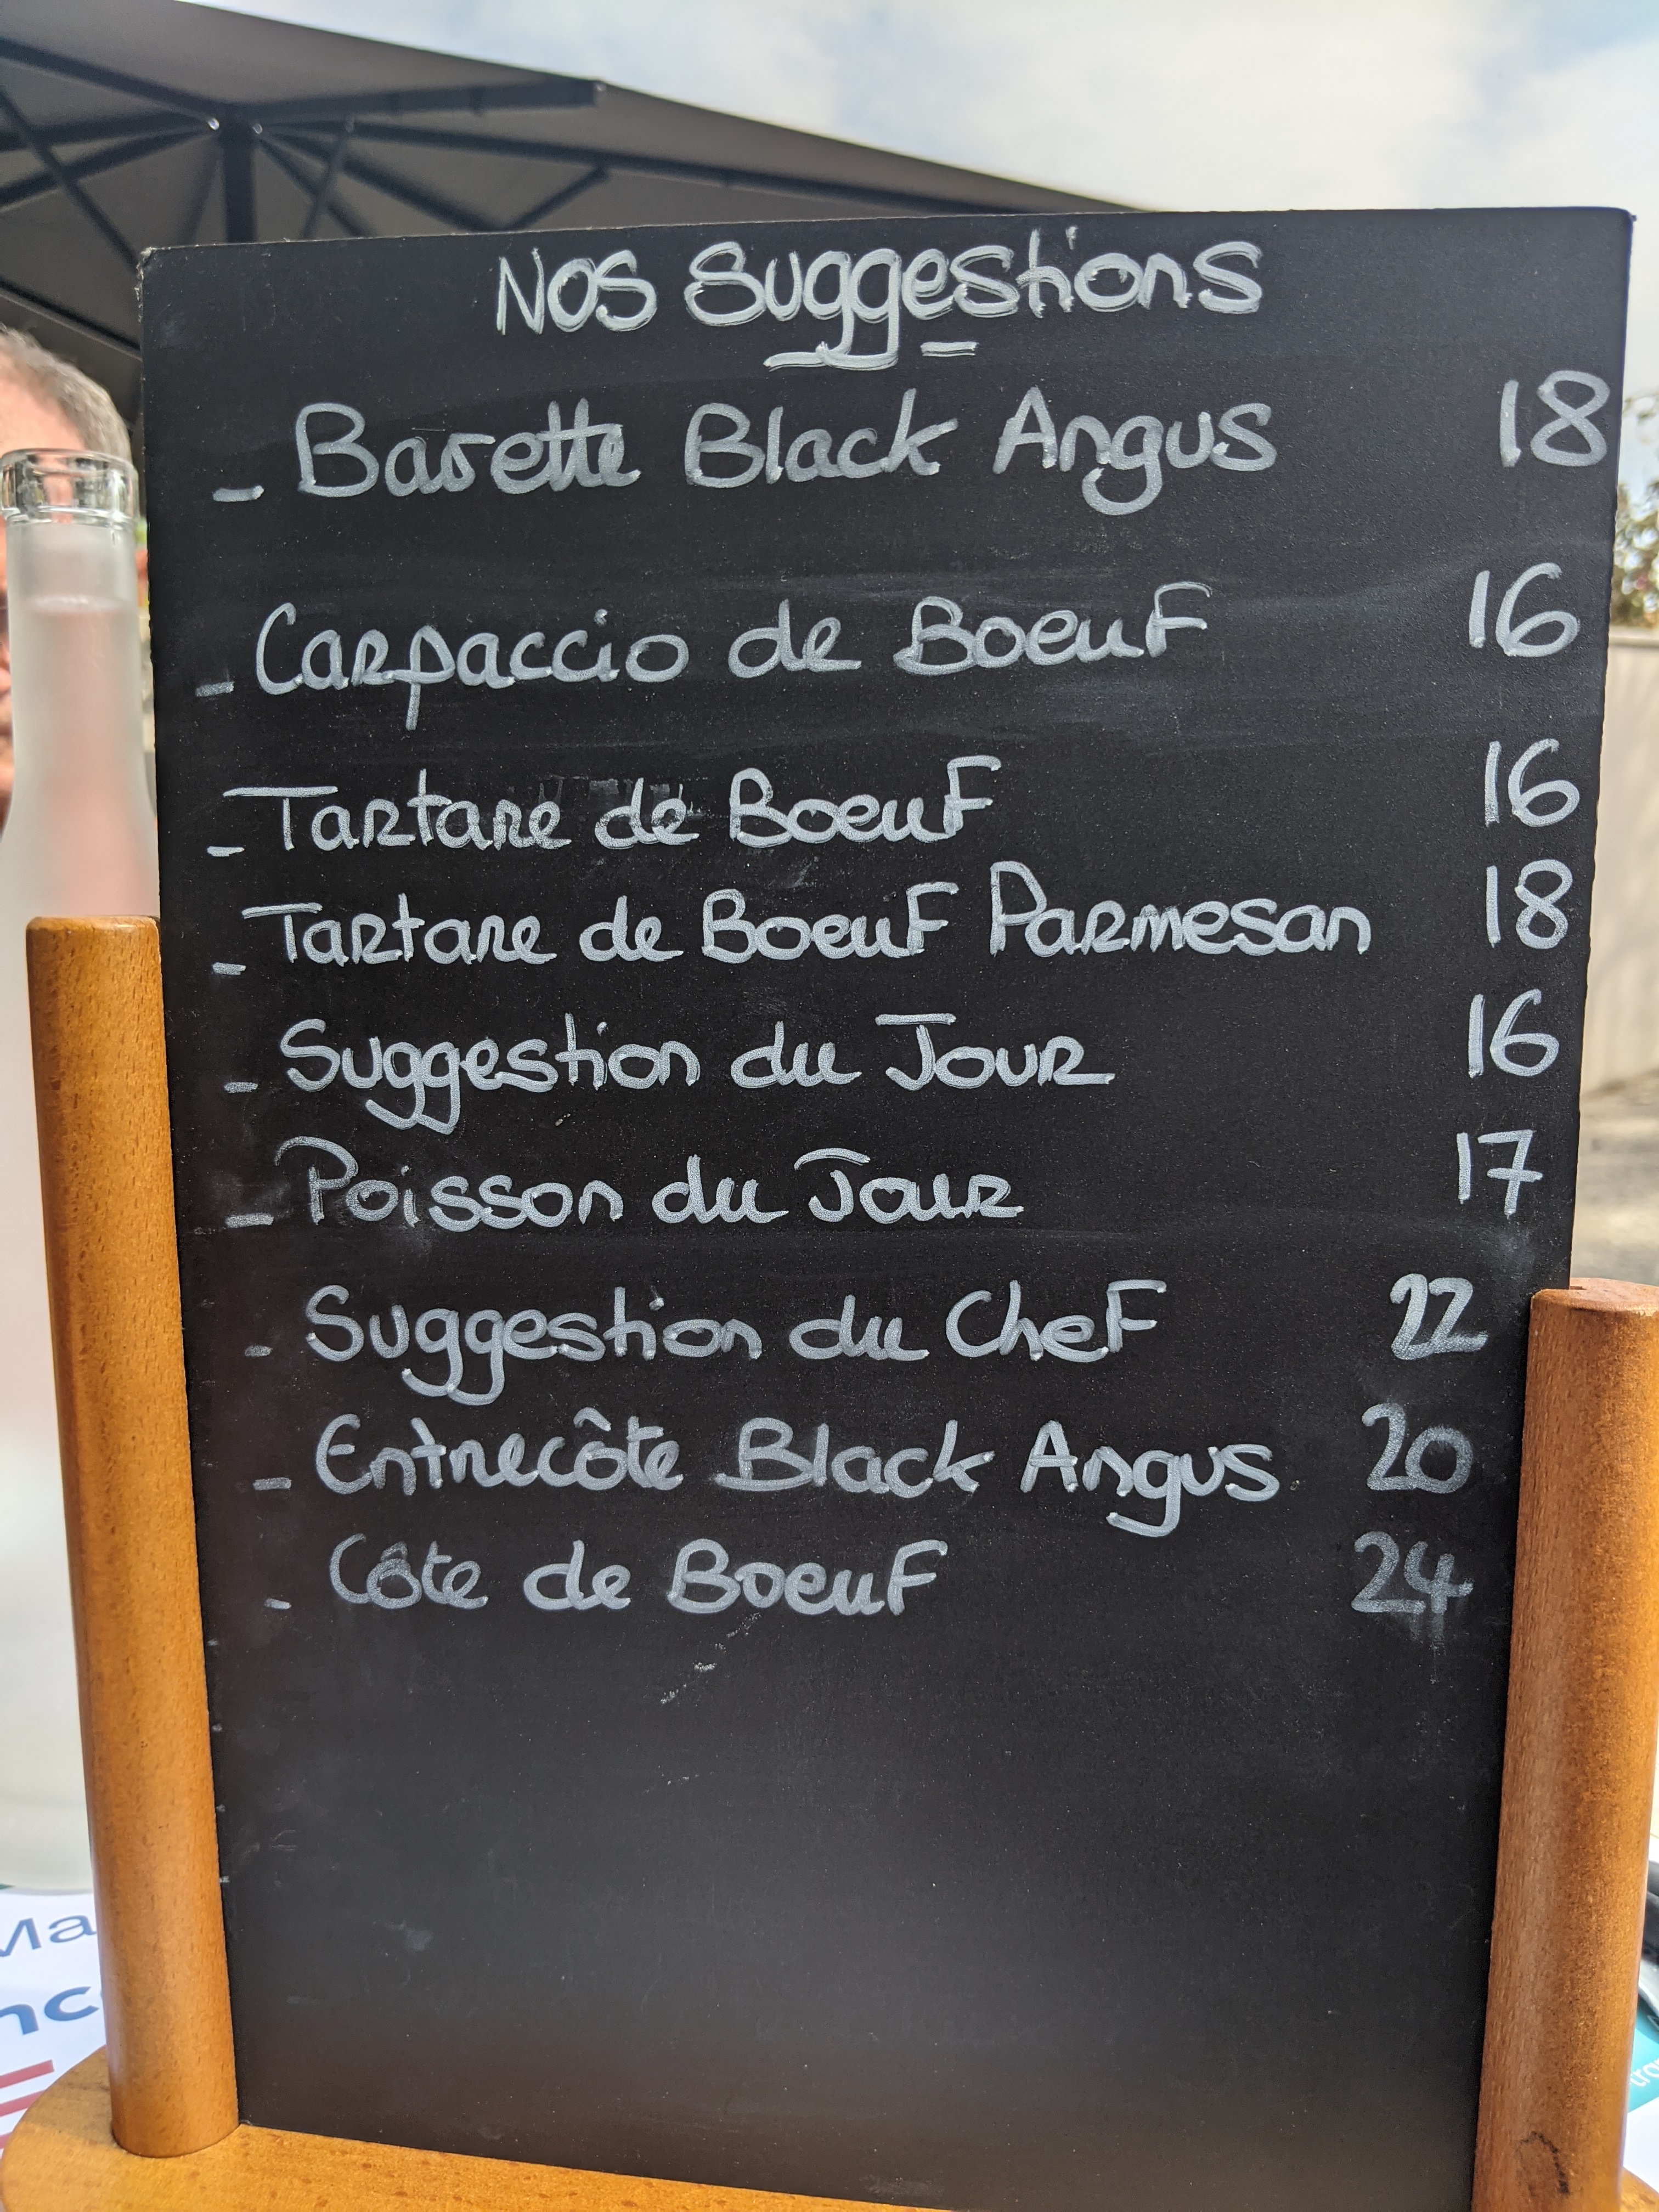 Nos Suggestions
- Bavette Black Angus 18
- Carpaccio de Boeuf 16
- Tartare de Boeuf 16
- Tartare de Boeuf Parmesan 18
- Suggestion du Jour 16
- Poisson du Jour 17
- Suggestion du Chef 22
- Entrecôte Black Angus 20
- Côte de Boeuf 24
Ma
nc